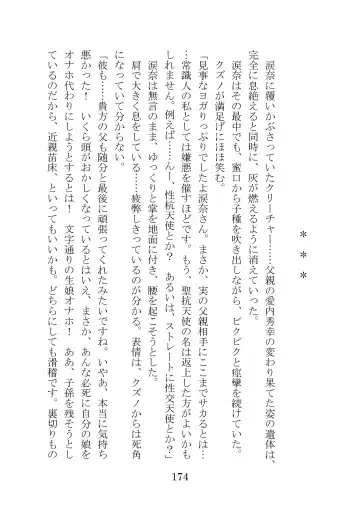 ＊＊＊
涙奈に覆いかぶさっていたクリーチャー……父親の愛内秀幸の変わり果てた姿の遺体は、
完全に息絶えると同時に、灰が燃えるように消えていった。
涙奈はその最中でも、蜜口から子種を吹き出しながら、ピクピクと痙攣を続けていた。
クズノが満足げにほほ笑む。
「見事なヨガりっぷりでしたよ涙奈さん。まさか、実の父親相手にここまでサカるとは…
…常識人の私としては嫌悪を催すほどです。もう、聖抗天使の名は返上した方がよいかも
しれません。例えば……んー、性杭天使とか？　あるいは、ストレートに性交天使とか？」
涙奈は無言のまま、ゆっくりと掌を地面に付き、腰を起こそうとした。
肩で大きく息をしている……疲弊しきっているのが分かる。表情は、クズノからは死角
になっていて分からない。
「彼も……貴方の父も随分と最後に頑張ってくれたみたいですね。いやあ、本当に気持ち
悪かった！　いくら頭がおかしくなっているとはいえ、まさか、あんな必死に自分の娘を
オナホ代わりにしようとするとは！　文字通りの生娘オナホ！　ああ、子孫を残そうとし
ているのだから、近親苗床、といってもいいかも。どちらにしても滑稽です。裏切りもの
174